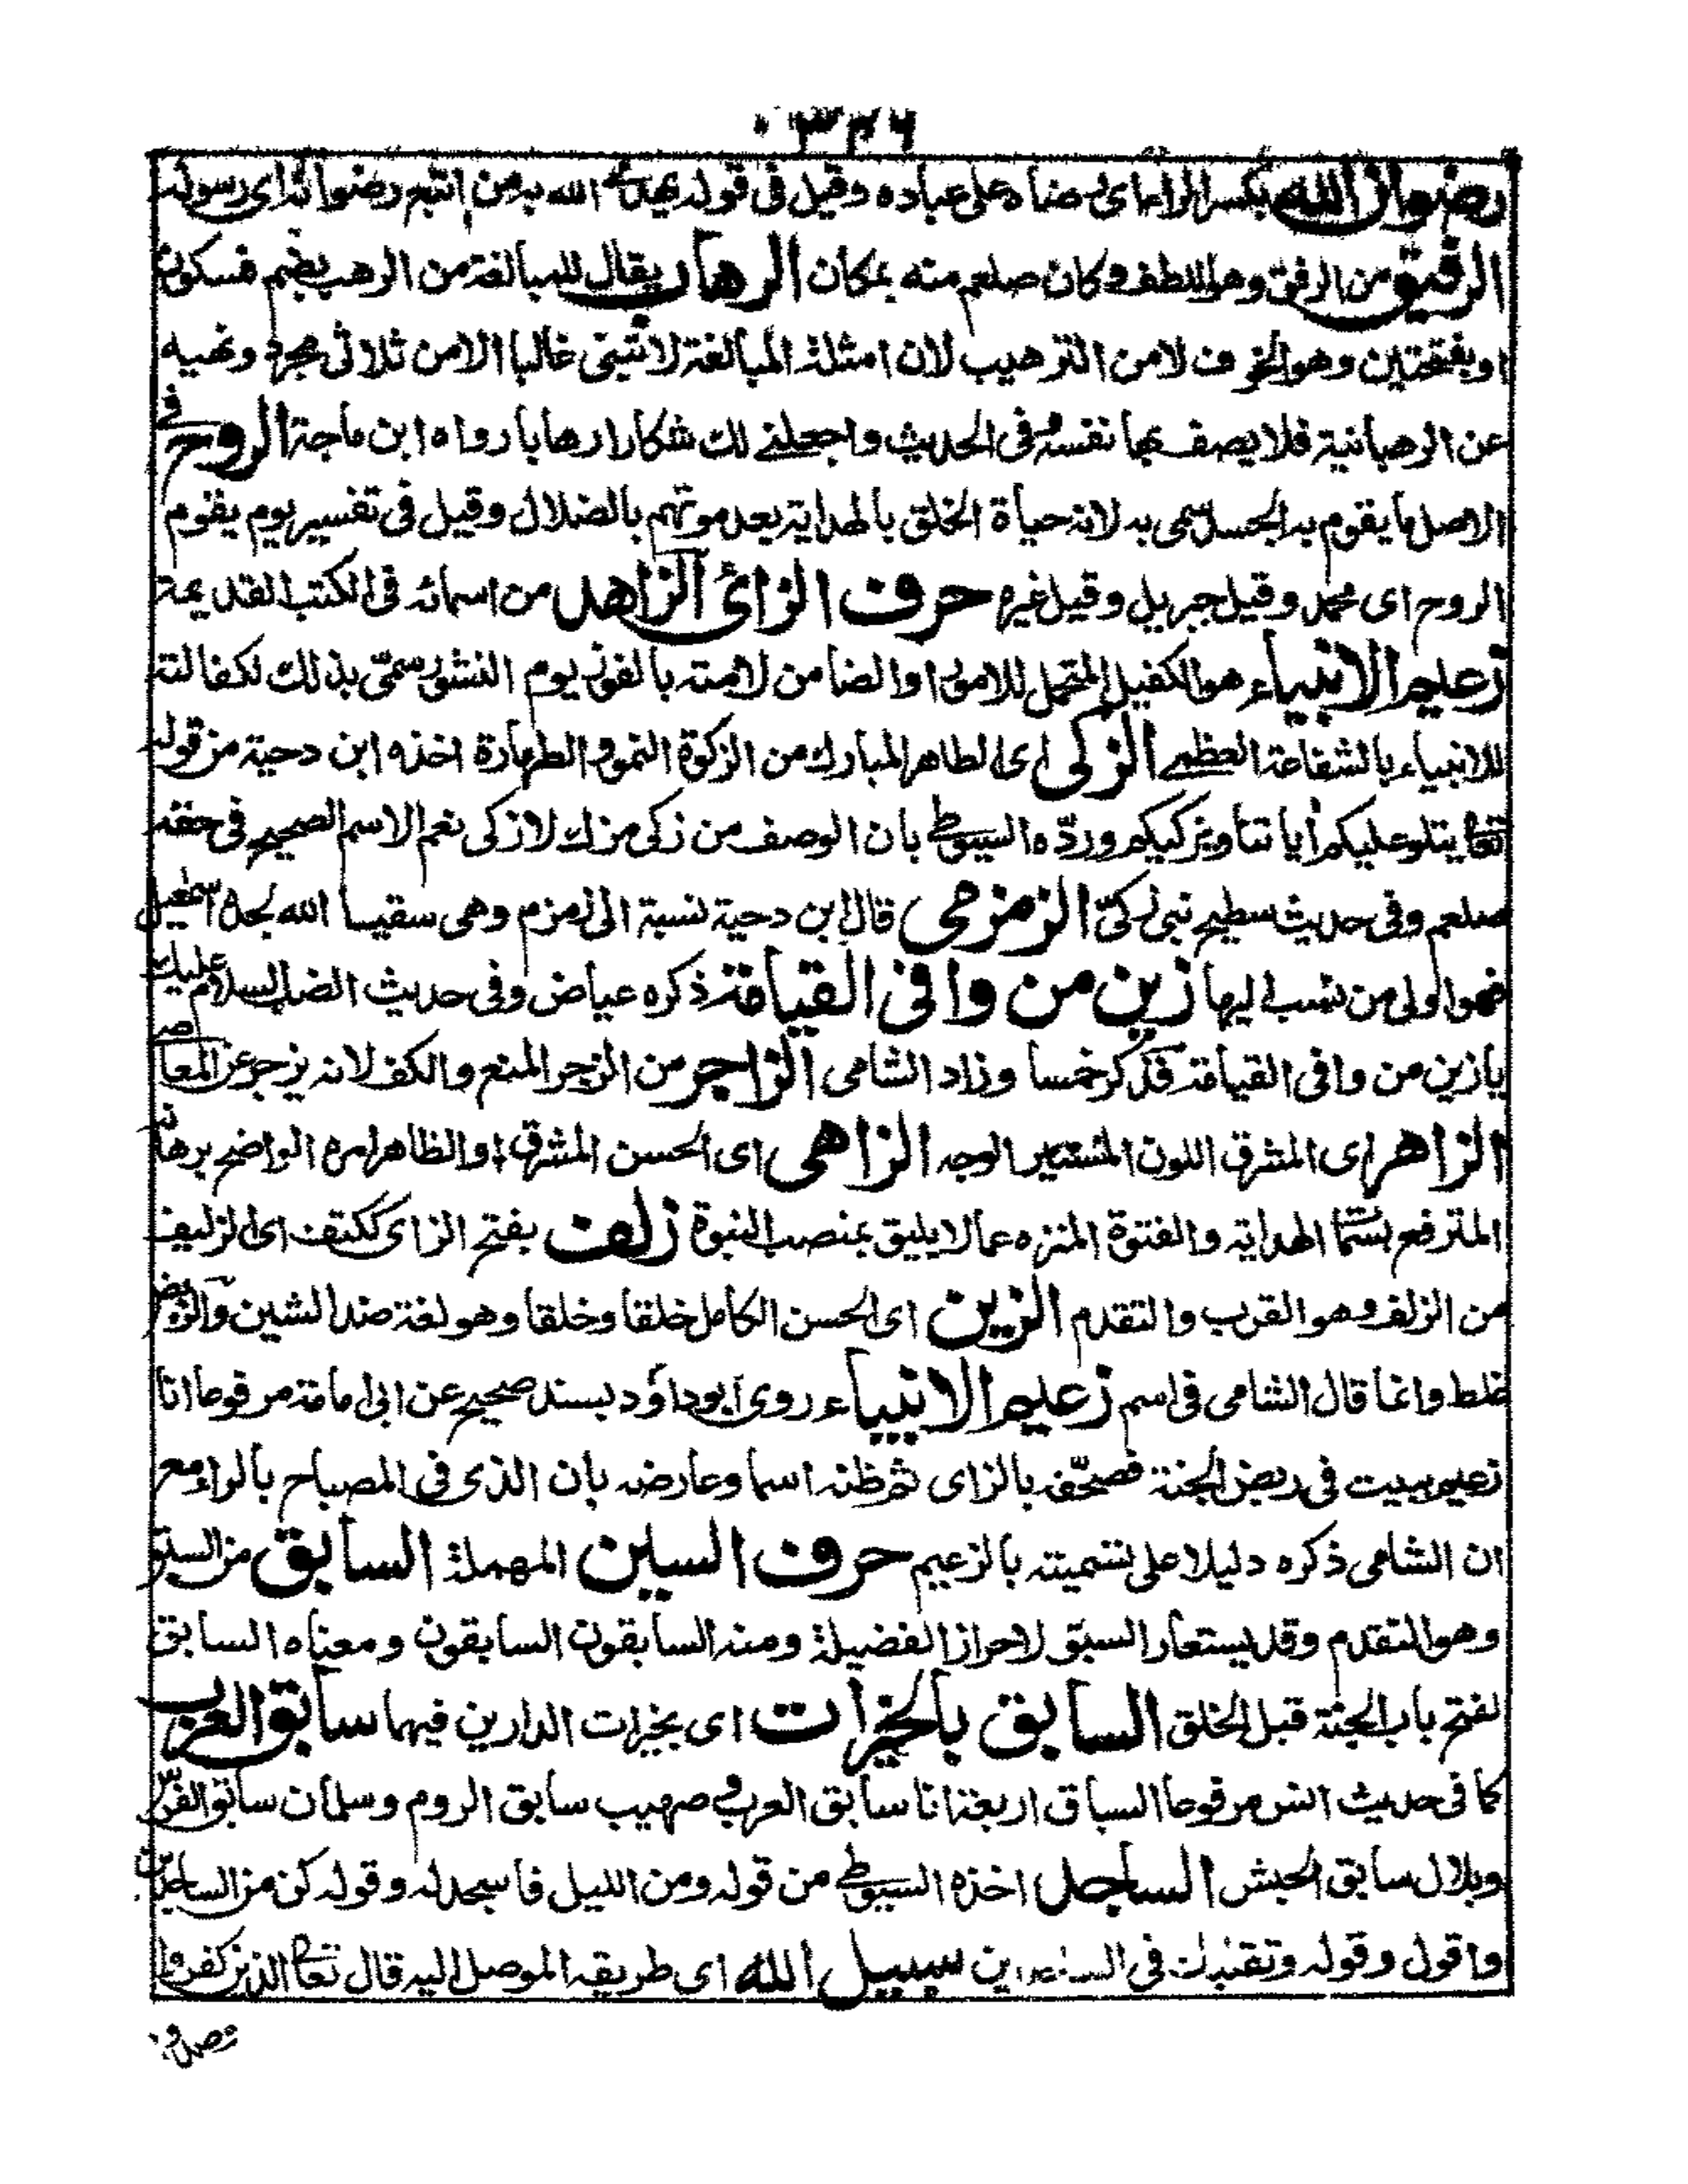 ٣٢٦
رضوان الله بكسر الراء اى رضاه على عباده وقيل فى قوله يهدى به الله من اتبع رضوانه اى رسوله
الرفيق من الرفق وهو اللطف وكان صلعم منه بمكان الرهاب يقال للمبالغة من الرهب بضم فسكون
او بفتحتين وهو الخوف لا من الترهيب لان امثلة المبالغة لا تبنى غالبا الا من ثلاثى مجرد ونهيه
عن الرهبانية فلا يصف بها نفسه وفى الحديث واجعلنى لك شكارا رهابا رواه ابن ماجة الروح فى
الاصل ما يقوم به الجسد سمى به لانه حياة الخلق بالهداية بعد موتهم بالضلال وقيل فى تفسير يوم يقوم
الروح اى محمد وقيل جبريل وقيل غيره حرف الزاى الزاهد من اسمائه فى الكتب القديمة
زعيم الانبياء هو الكفيل المتحمل للامور او الضامن لامته بالفوز يوم النشور سمى بذلك لكفالته
للانبياء بالشفاعة العظمى الزكى اى الطاهر المبارك من الزكوة النمو والطهارة اخذه ابن دحية من قوله
تعا يتلو عليكم أياتنا ويزكيكم وردّه السيوطى بان الوصف من زكى مزك لا زكى نعم الاسم الصحيح فى حقه
صلعم وفى حديث سطيح نبى زكىّ الزمزمى قال ابن دحية نسبة الى زمزم وهى سقيا الله لجده اسمعيل
فهو اولى من نسب اليها زين من وافى القيامة ذكره عياض وفى حديث الضب السلام عليك
يا زين من وافى القيامة فذكر خمسا وزاد الشامى الزاجر من الزجر المنع والكف لانه يزجر عن المعاصى
الزاهر اى المشرق اللون المستنير الوجه الزاهى اى الحسن المشرق او الظاهر امره الواضح برهانه
المترفع بسما الهداية والفتوة المنزه عما لا يليق بمنصب النبوة زلف بفتح الزاى ككتف اى الزليف
من الزلف وهو القرب والتقدم الزين اى الحسن الكامل خلقا وخلقا وهو لغة ضد الشين والزبض
غلط وانما قال الشامى فى اسم زعيم الانبياء روى ابو داؤد بسند صحيح عن ابى امامة مرفوعا انا
زعيم ببيت فى ربض الجنة فصحّفه بالزاى ثم ظنه اسما وعارضه بان الذى فى المصباح بالراء مع
ان الشامى ذكره دليلا على تسميته بالزعيم حرف السين المهملة السابق من السبق
وهو التقدم وقد يستعار السبق لاحراز الفضيلة ومنه السابقون السابقون ومعناه السابق
لفتح باب الجنة قبل الخلق السابق بالخيرات اى بخيرات الدارين فيهما سابق العرب
كما فى حديث انس مرفوعا السباق اربعة انا سابق العرب وصهيب سابق الروم وسلمان سابق الفرس
وبلال سابق الحبش الساجد اخذه السيوطى من قوله ومن الليل فاسجد له وقوله كن من الساجدين
واقول وقوله وتقلبك فى الساجدين سبيل الله اى طريقه الموصل اليه قال تعا الذين كفروا
وصدوا